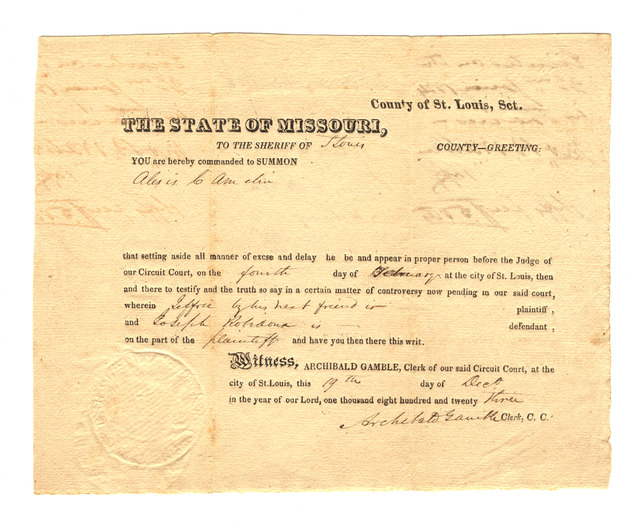 County of St. Louis, Sct.
THE STATE OF MISSOURI,
TO THE SHERIFF OF St Louis COUNTY—GREETING:
YOU are hereby commanded to SUMMON
Alexis C Amelin
that setting aside all manner of excse and delay he be and appear in proper person before the Judge of
our Circuit Court, on the fourth day of February at the city of St. Louis, then
and there to testify and the truth so say in a certain matter of controversy now pending in our said court,
wherein Jeffrie by his next friend is plaintiff,
and Joseph Robidoux is defendant,
on the part of the plaintiff and have you then there this writ.
Witness, ARCHIBALD GAMBLE, Clerk of our said Circuit Court, at the
city of St.Louis, this 19th day of Decr
in the year of our Lord, one thousand eight hundred and twenty three
Archibald Gamble Clerk, C. C.